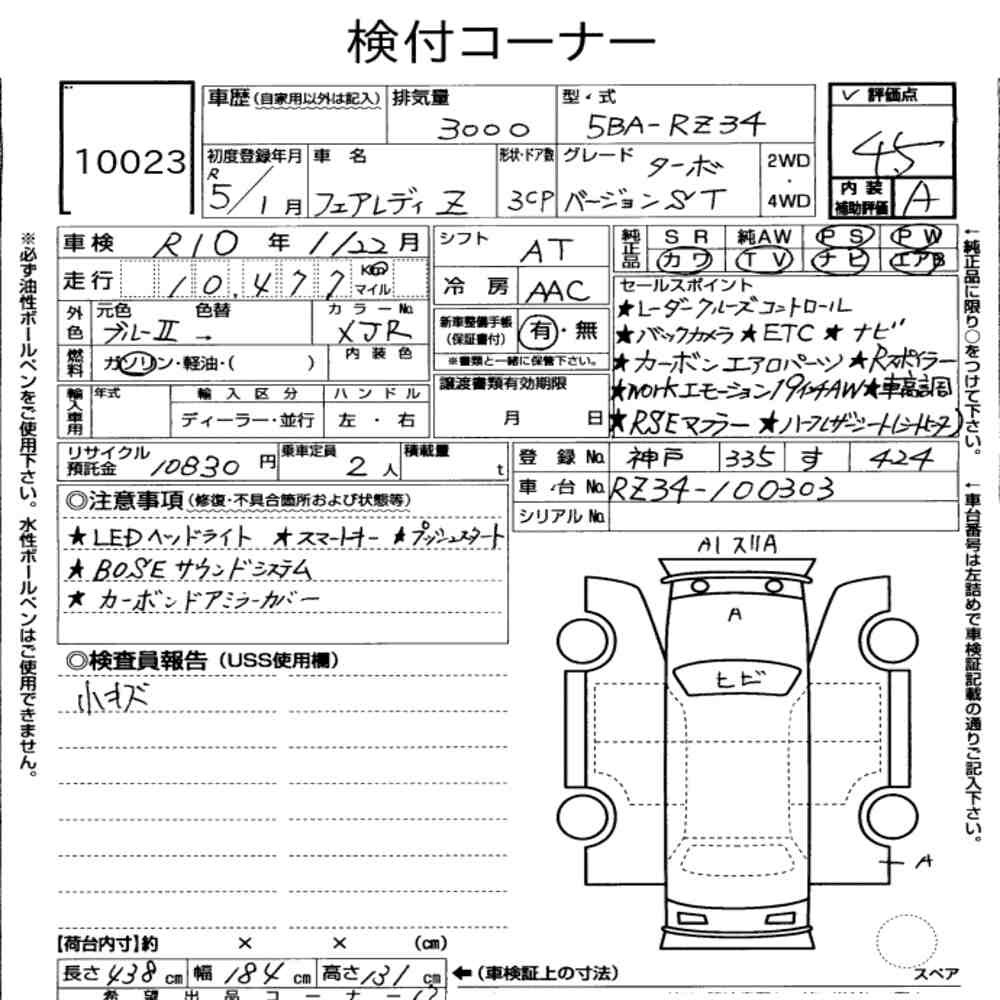 検付コーナー
10023
車歴(自家用以外は記入) 排気量 3000
型・式 5BA-RZ34
✓ 評価点
4.5
内装補助評価 A
初度登録年月 R 5/1月
車名 フェアレディ Z
形状・ドア数 3CP
グレード ターボ
バージョンST
2WD・4WD
※必ず油性ボールペンをご使用下さい。水性ボールペンはご使用できません。
車検 R10年 11/22月
走行 10.477 Km マイル
外色 元色 ブルーII 色替 →
カラーNo. XJR
燃料 ガソリン・軽油・( )
内装色
輸入車用 年式 輸入区分 ハンドル
ディーラー・並行 左・右
シフト AT
冷房 AAC
新車整備手帳(保証書付) 有・無
※書類と一緒に保管下さい。
譲渡書類有効期限
月 日
純正品 SR 純AW PS PW
カワ TV ナビ エアB
セールスポイント
★レーダークルーズコントロール
★バックカメラ★ETC★ナビ
★カーボンエアロパーツ★Rスポイラー
★WORKエモーション19インチAW★車高調
★RSEマフラー ★ハーフレザーシート(シートヒーター)
←純正品に限り○をつけて下さい。
←車台番号は左詰めで車検証記載の通りご記入下さい。
リサイクル預託金 10830円
乗車定員 2人
積載量 t
登録No. 神戸 335 す 424
車台No. RZ34-100303
シリアルNo.
◎注意事項(修復・不具合箇所および状態等)
★LEDヘッドライト ★スマートキー ★プッシュスタート
★BOSEサウンドシステム
★カーボンドアミラーカバー
◎検査員報告(USS使用欄)
小キズ
A1 スリA
A
ヒビ
A
【荷台内寸】約 × × (cm)
長さ438cm 幅184cm 高さ131cm
←(車検証上の寸法)
スペア
希望出品コーナー